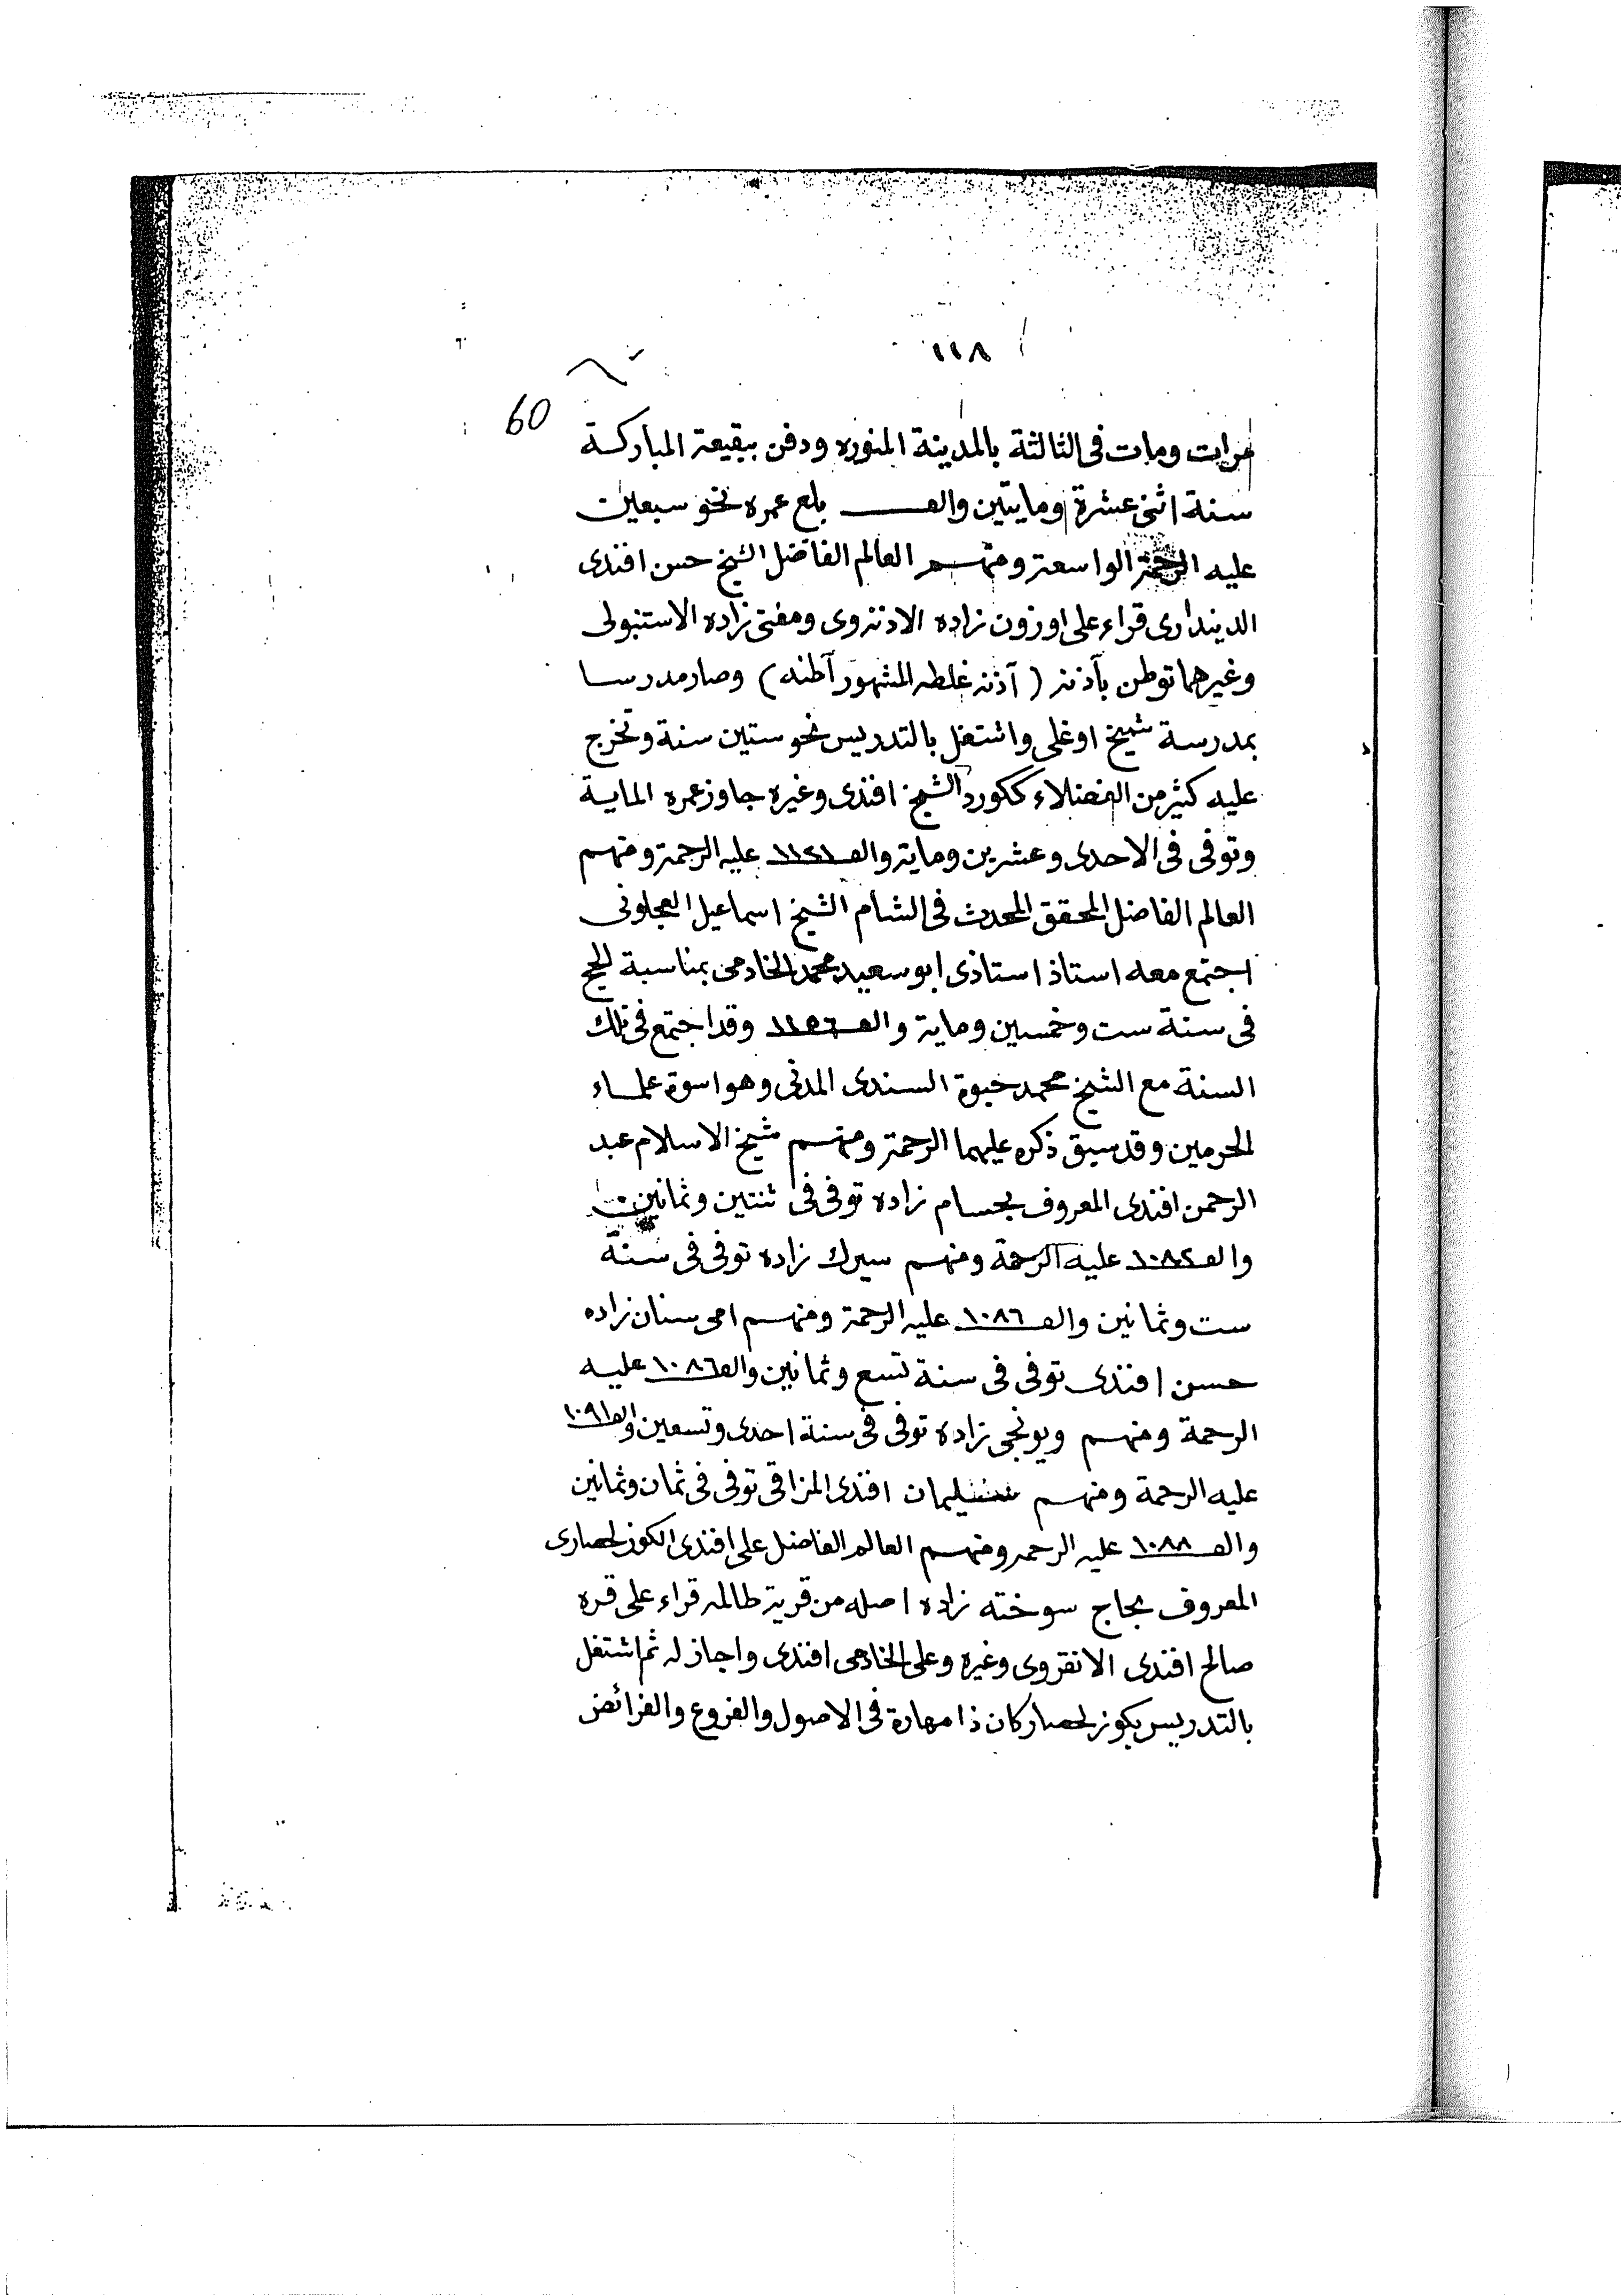 ١١٨
60
مرات ومات فى الثالثة بالمدينة المنوره ودفن ببقيعة المباركة
سنة اثنى عشرة ومايتين والف بلغ عمره نحو سبعين
عليه الرحمة الواسعة ومنهم العالم الفاضل الشيخ حسن افندى
الدیندارى قراء على اوزون زاده الادنروى ومفتى زاده الاستنبولى
وغيرهما توطن بآذنه (آذنه غلطه المشهور آطنه) وصار مدرسا
بمدرسة شيخ اوغلى واشتغل بالتدريس نحو ستين سنة وتخرج
عليه كثير من الفضلاء ككورد الشيخ افندى وغيره جاوز عمره الماية
وتوفى فى الاحدى وعشرين وماية والف ١١٢١ عليه الرحمة ومنهم
العالم الفاضل المحقق المحدث فى الشام الشيخ اسماعيل العجلونى
اجتمع معه استاذ استاذى ابو سعيد محمد الخادمى بمناسبة الحج
فى سنة ست وخمسين وماية والف ١١٥٦ وقد اجتمع فى تلك
السنة مع الشيخ محمد حيوة السندى المدنى وهو اسوة علماء
الحرمين وقد سبق ذكره عليهما الرحمة ومنهم شيخ الاسلام عبد
الرحمن افندى المعروف بحسام زاده توفى فى ثنتين وثمانين
والف ١٠٨٢ عليه الرحمة ومنهم سيرك زاده توفى فى سنة
ست وثمانين والف ١٠٨٦ عليه الرحمة ومنهم امى سنان زاده
حسن افندى توفى فى سنة تسع وثمانين والف ١٠٨٦ عليه
الرحمة ومنهم ويونجى زاده توفى فى سنة احدى وتسعين والف ١٠٩١
عليه الرحمة ومنهم سليمان افندى المزاقى توفى فى ثمان وثمانين
والف ١٠٨٨ عليه الرحمه ومنهم العالم الفاضل على افندى الكوزلحصارى
المعروف بحاج سوخته زاده اصله من قرية طالمه قراء على قره
صالح افندى الانقروى وغيره وعلى الخادمى افندى واجاز له ثم اشتغل
بالتدريس بكوزلحصار كان ذا مهارة فى الاصول والفروع والفرائض